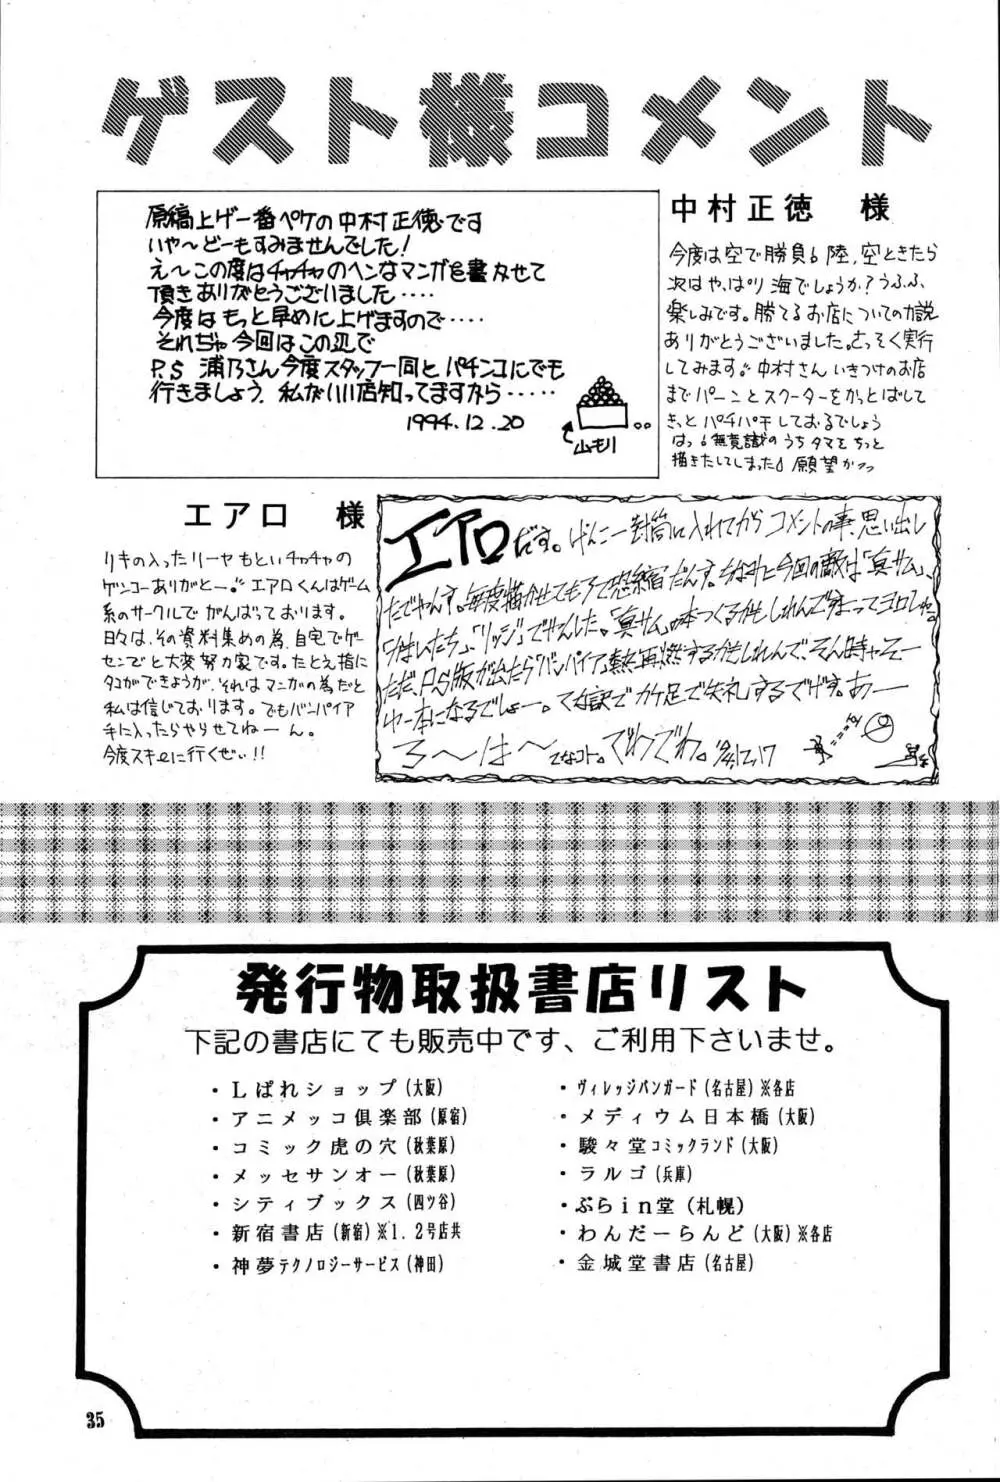 ゲスト様コメント
原稿上げ一番ペケの中村正徳です
いや〜どーもすみませんでした!
え〜この度はチャチャのヘンなマンガを書かせて
頂きありがとうございました‥‥
今度はもっと早めに上げますので‥‥
それぢゃ今回はこの辺で
P.S 浦乃さん今度スタッフ一同とパチンコにでも
行きましょう、私がいい店知ってますから‥‥‥
1994.12.20
山モリ
中村正徳 様
今度は空で勝負♂陸,空ときたら
次はや、はり海でしょうか?うふふ、
楽しみです。勝てるお店についての力説
ありがとうございました。さっそく実行
してみます。中村さんいきつけのお店
までパーンとスクーターをかっとばして
きっとパチパチしておるでしょう
はっ♂無意識のうちタマをちっと
描きたしてしまった♂願望かっっ
エアロ 様
リキの入ったリーヤもといチャチャの
ゲンコーありがとー。エアロくんはゲーム
系のサークルでがんばっております。
日々は、その資料集めの為、自宅でゲー
センでと大変努力家です。たとえ指に
タコができようが、それはマンガの為だと
私は信じております。でもバンパイア
手に入ったらやらせてねーん。
今度スキーに行くぜい!!
エアロだす。げんこー封筒に入れてからコメントの事、思い出し
たでやんす。毎度描かせてもろて恐縮だんす。ちなみに今回の敵は「真サム」、
「リッジ」でやんした。「真サム」の本つくるかもしれんで
ただ、P.S版が出たら「バンパイア」熱再燃するかもしれんで、そん時ゃそー
ゆー本になるでしょー。て な訳でカケ足で失礼するでげす。あー
ろ〜は〜 てなコト。でわでわ。
発行物取扱書店リスト
下記の書店にても販売中です、ご利用下さいませ。
・しぱれショップ(大阪)
・アニメッコ倶楽部(原宿)
・コミック虎の穴(秋葉原)
・メッセサンオー(秋葉原)
・シティブックス(四ツ谷)
・新宿書店(新宿)※1.2号店共
・神夢テクノロジーサービス(神田)
・ヴィレッジバンガード(名古屋)※各店
・メディウム日本橋(大阪)
・駿々堂コミックランド(大阪)
・ラルゴ(兵庫)
・ぶらin堂(札幌)
・わんだーらんど(大阪)※各店
・金城堂書店(名古屋)
35